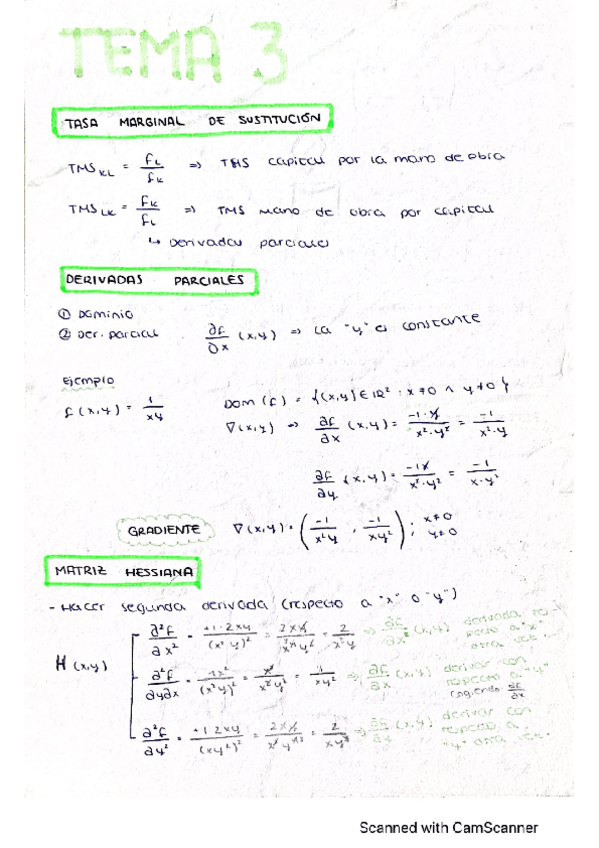 TEMA 3
TASA MARGINAL DE SUSTITUCIÓN
TMS KL = fL / fK => TMS capital por la mano de obra
TMS LK = fK / fL => TMS mano de obra por capital
↳ Derivadas parciales
DERIVADAS PARCIALES
① Dominio
② Der. parcial. ∂f/∂x (x,y) => La "y" es constante
Ejemplo
f(x,y) = 1/xy
Dom (f) = {(x,y) ∈ ℝ² : x≠0 ∧ y≠0}
∇(x,y) => ∂f/∂x (x,y) = -1·y / x²·y² = -1 / x²·y
∂f/∂y (x,y) = -1x / x²·y² = -1 / x·y²
GRADIENTE ∇(x,y) = ( -1/x²y , -1/xy² ) ; x≠0 y≠0
MATRIZ HESSIANA
- Hacer segunda derivada (respecto a "x" o "y")
H (x,y)
∂²f/∂x² = +1·2xy / (x²y)² = 2xy / x⁴y² = 2 / x³y => ∂f/∂x (x,y) derivada respecto a "x" otra vez.
∂²f/∂y∂x = 1x² / (x²y)² = => ∂f/∂x (x,y) derivar con respecto a "y" cogiendo ∂f/∂x
∂²f/∂y² = +1·2xy / (xy²)² = 2xy = 2 / xy³ => ∂f/∂y (x,y) derivar con respecto a "y" otra vez.
Scanned with CamScanner